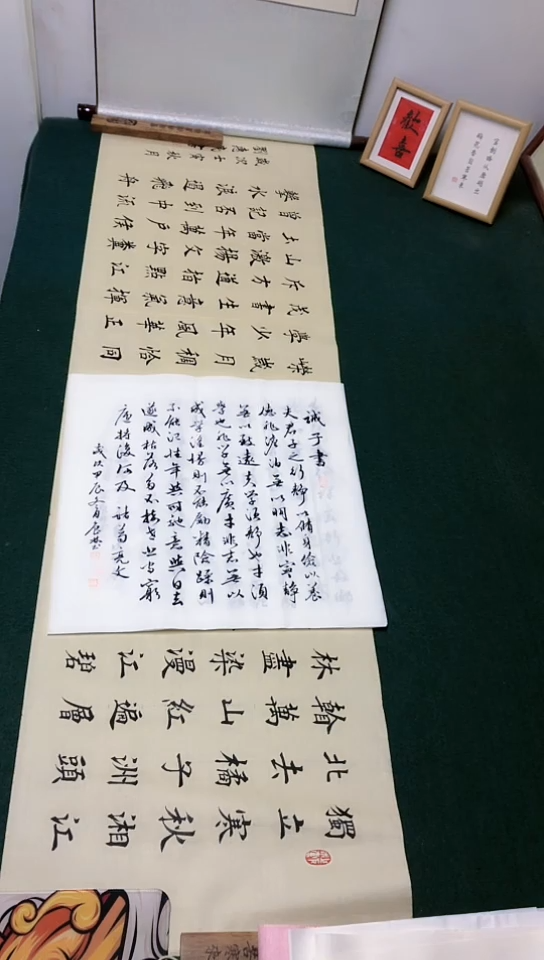 歡喜
獨立寒秋湘江
北去橘子洲頭
看萬山紅遍層
林盡染漫江碧
誡子書
夫君子之行靜以脩身儉以養
德非澹泊無以明志非寧靜
無以致遠夫學須靜也才須
學也非學無以廣才非志無以
成學淫慢則不能勵精險躁則
不能冶性年與時馳意與日去
遂成枯落多不接世悲守窮
廬將復何及 諸葛亮文
歲次甲辰
嶸歲月稠恰同
學少年風華正
茂書生意氣揮
斥方遒指點江
山激揚文字糞
土當年萬戶侯
曾記否到中流
擊水浪遏飛舟